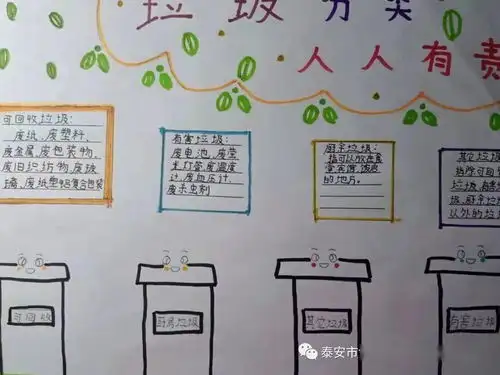 垃圾分类
人人有责
可回收垃圾:
废纸,废塑料,
废金属,废包装物,
废旧织防物,废玻
璃,废纸塑铝复合包装
有害垃圾:
废电池,废荧
光灯管,废温度
计,废血压计,
废杀虫剂
厨余垃圾:
的地方。
其它垃圾:
垃圾,
以外的垃圾
可回收
厨房垃圾
其它垃圾
有害垃圾
泰安市